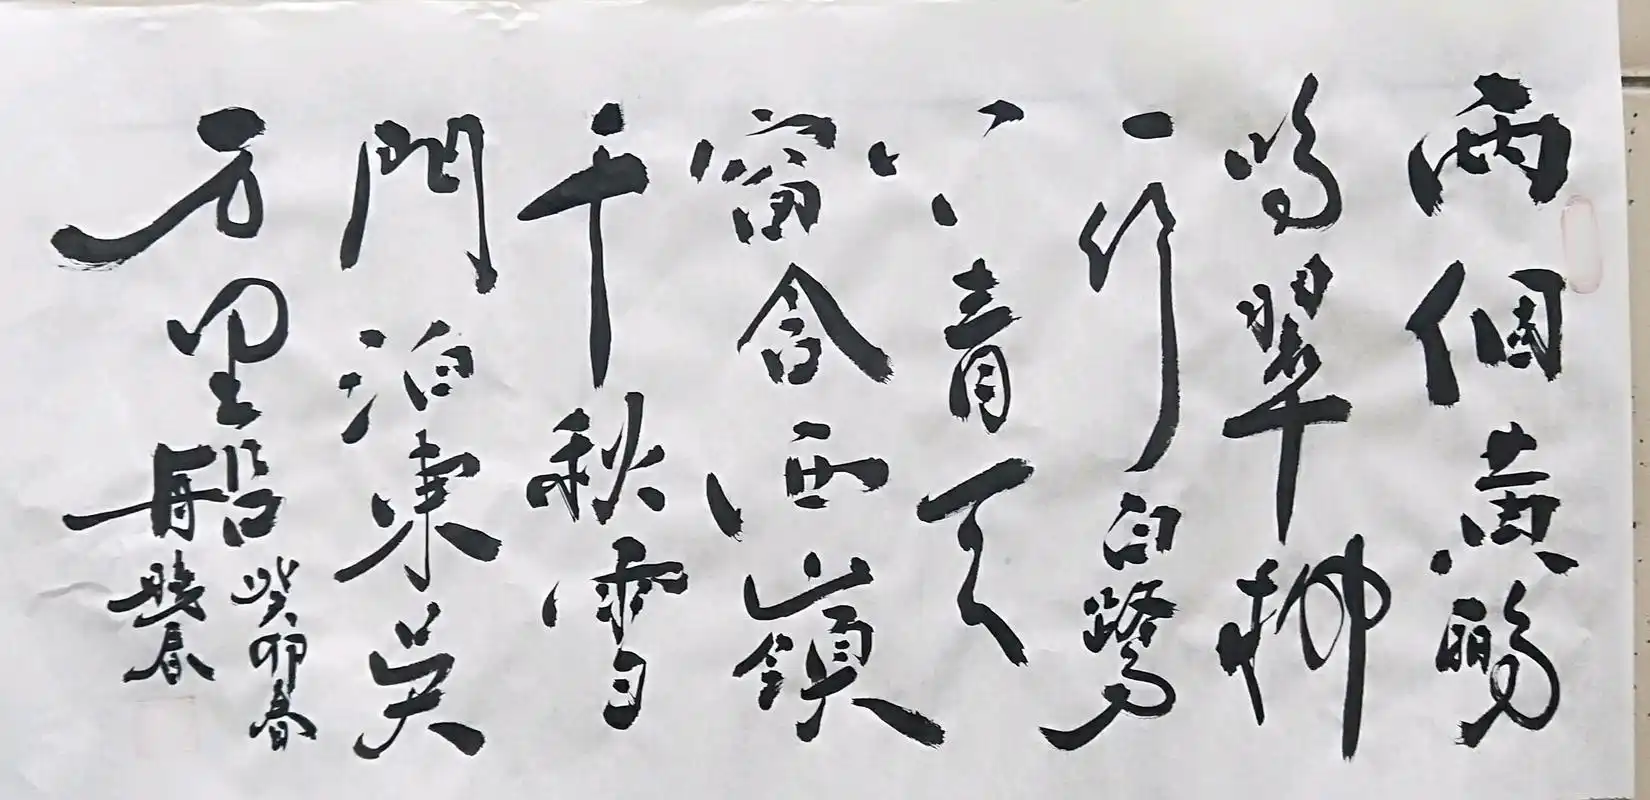 兩個黃鸝
鳴翠柳
一行白鷺
上青天
窗含西嶺
千秋雪
門泊東吳
万里船
癸卯春